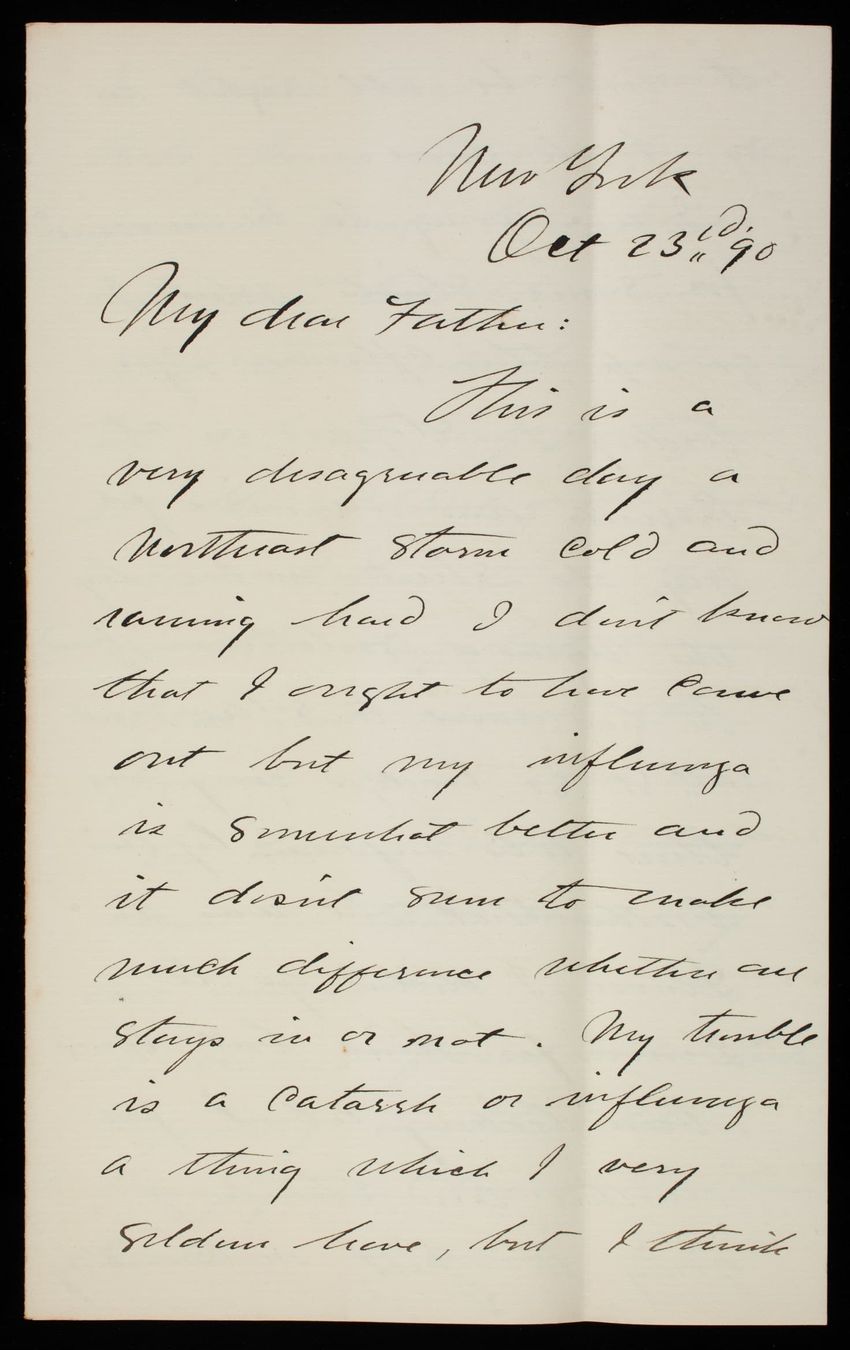 New York
Oct 23rd. 90
My dear Father:
This is a
very disagreeable day a
Northeast storm cold and
raining hard I don't know
that I ought to have come
out but my influenza
is somewhat better and
it dosn't seem to make
much difference whether one
stays in or not. My trouble
is a Catarrh or influenza
a thing which I very
seldom have, but I think